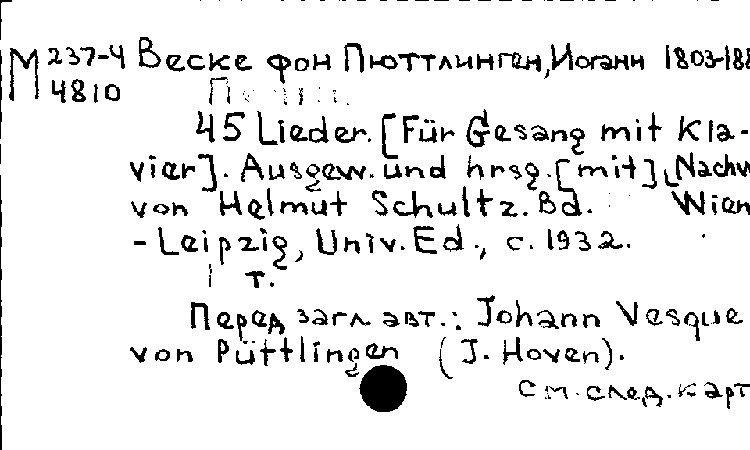 М 237-4 Веске фон Пюттлинген, Иоганн 1803-188
4810
45 Lieder. [Für Gesang mit Kla-
vier]. Ausgew. und hrsg. [mit] Nachw
von Helmut Schultz. Bd. Wien
- Leipzig, Univ. Ed., c. 1932.
1 т.
Перед загл. авт.: Johann Vesque
von Püttlingen (J. Hoven).
см. след. карт